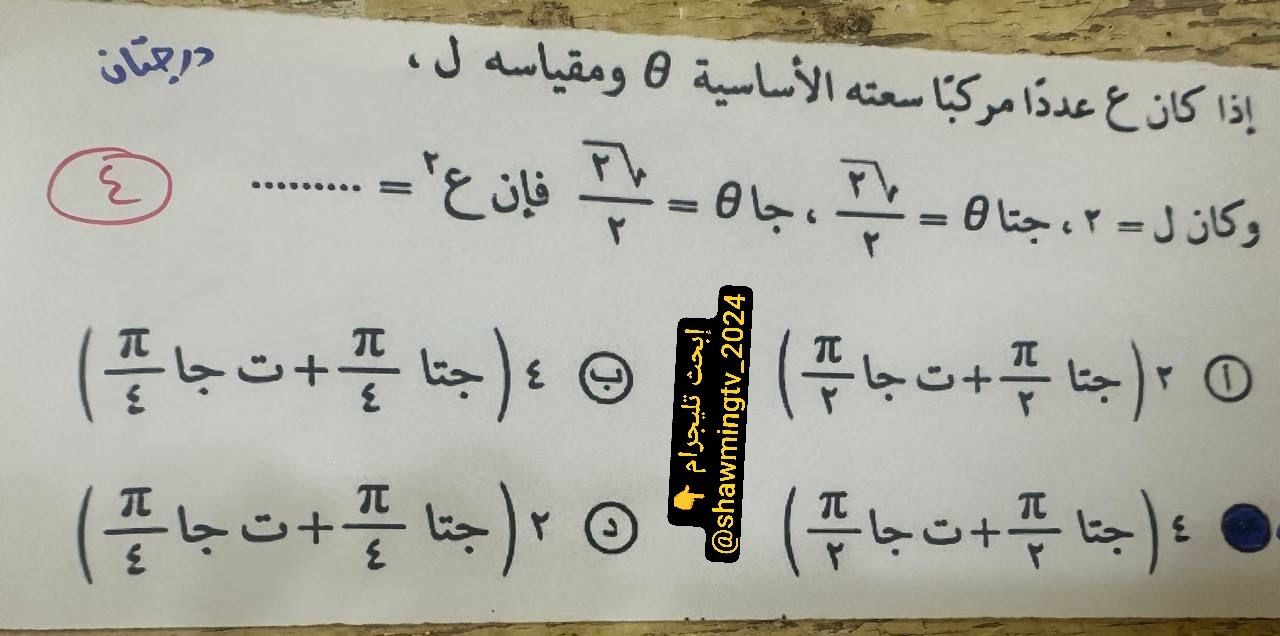 درجتان
إذا كان ع عددًا مركبًا سعته الأساسية θ ومقياسه ل ،
وكان ل = ٢ ، جتا θ = √٢/٢ ، جا θ = √٢/٢ فإن ع٢ = .........
٤
أ ٢ (جتا π/٢ + ت جا π/٢)
ب ٤ (جتا π/٤ + ت جا π/٤)
٤ (جتا π/٢ + ت جا π/٢)
د ٢ (جتا π/٤ + ت جا π/٤)
إبحث تليجرام 👈
@shawmingtv_2024